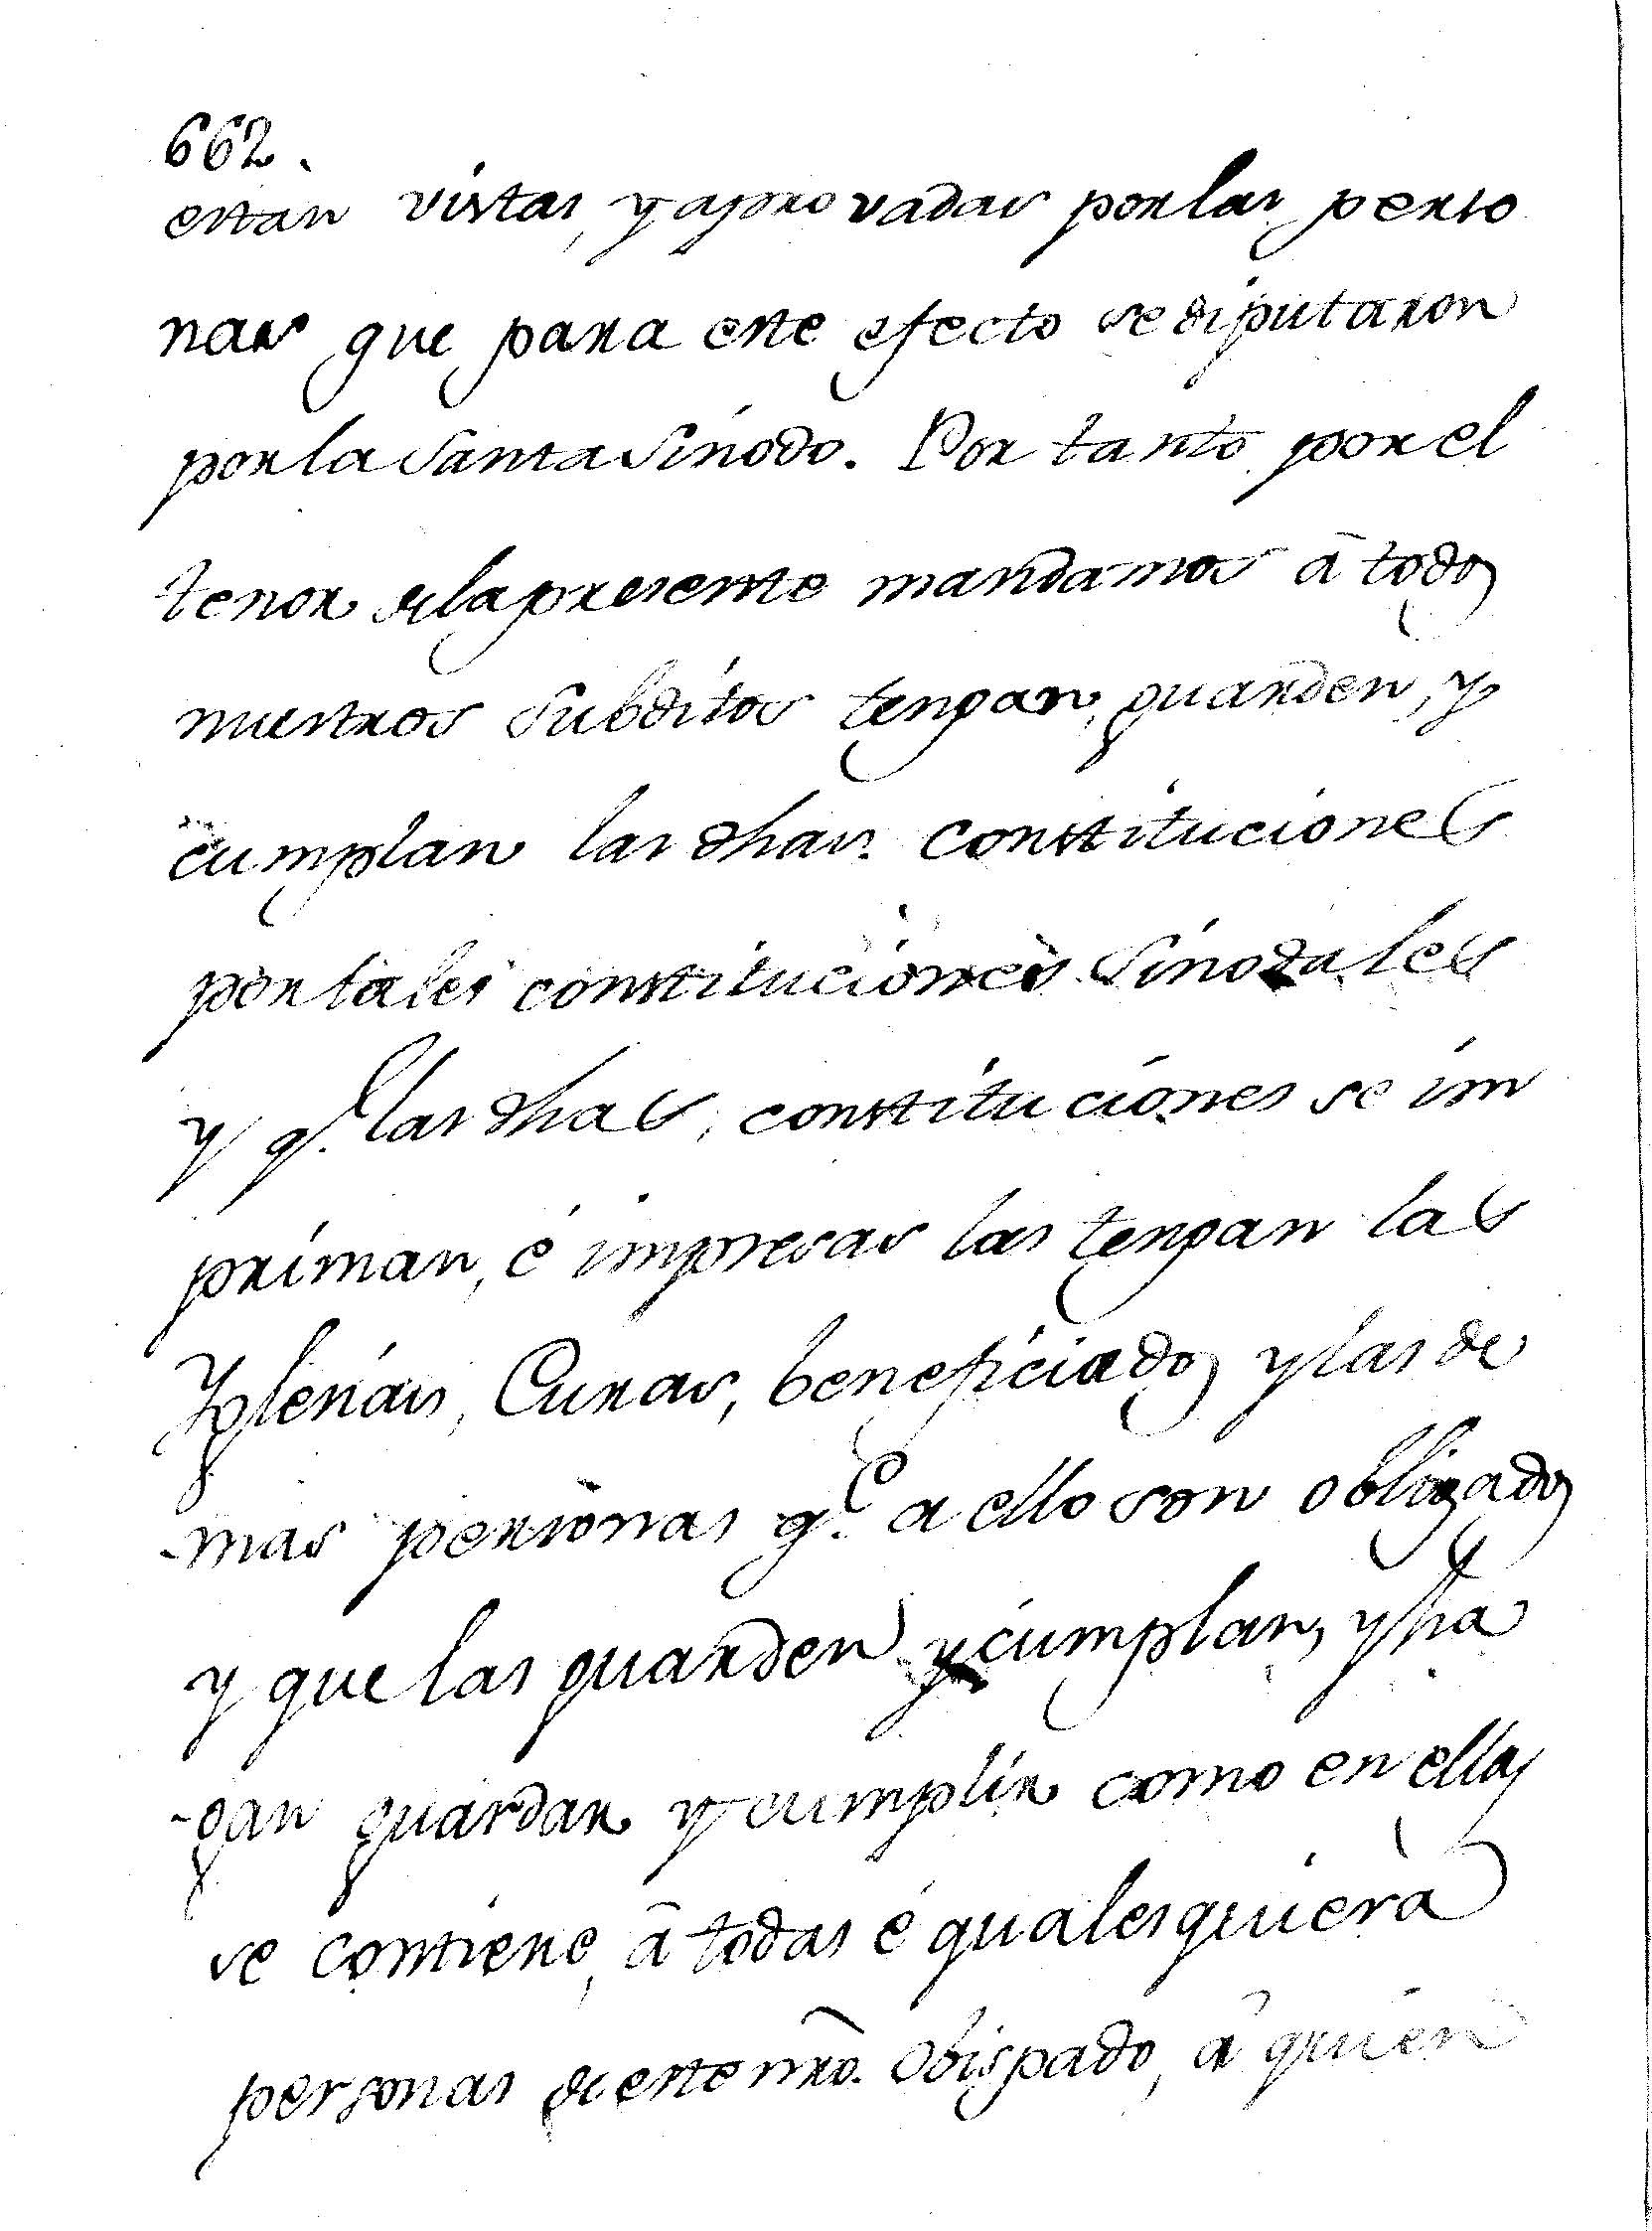 662.
estan vistas, y aprovadas por las perso
nas que para este efecto se diputaron
por la Santa Sinodo. Por tanto por el
tenor de la presente mandamos â todos
nuestros Subditos tengan, guarden, y
cumplan las dhas. constituciones
por tales constituciones Sinodales
y q.e las dhas, constituciones se im
priman, é impresas las tengan las
Yglesias, Curas, beneficiados y las de
-mas personas q.e a ello son obligados
y que las guarden y cumplan, y ha
-gan guardar y cumplir como en ellas
se contiene, â todas é qualesquiera
personas de este nr̃o. Obispado, â quien